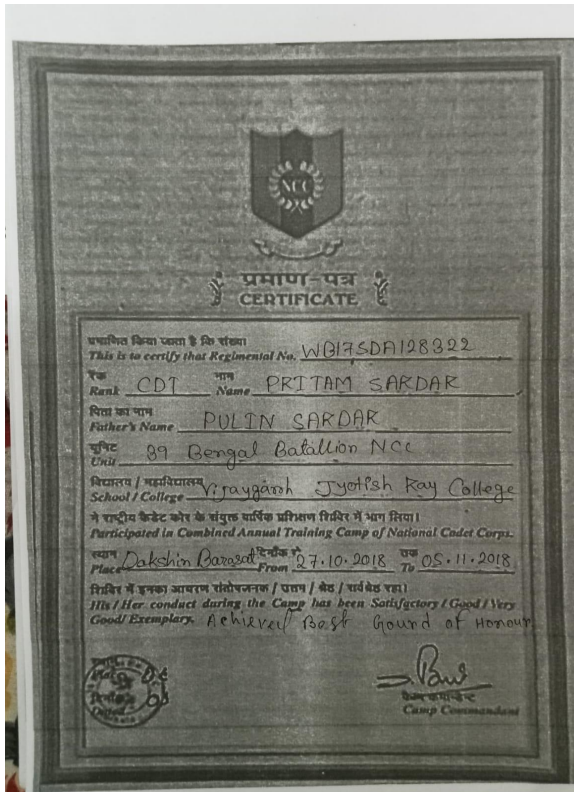 NCC
प्रमाण-पत्र
CERTIFICATE
प्रमाणित किया जाता है कि संख्या
This is to certify that Regimental No. WB17SDA128322
रैंक नाम
Rank CDT Name PRITAM SARDAR
पिता का नाम
Father's Name PULIN SARDAR
यूनिट
Unit 39 Bengal Batallion NCC
विद्यालय / महाविद्यालय
School / College Vijaygarh Jyotish Ray College
ने राष्ट्रीय कैडेट कोर के संयुक्त वार्षिक प्रशिक्षण शिविर में भाग लिया।
Participated in Combined Annual Training Camp of National Cadet Corps.
स्थान दिनाँक से तक
Place Dakshin Barasat From 27.10.2018 To 05.11.2018
शिविर में इनका आचरण संतोषजनक / उत्तम / श्रेष्ठ / सर्वश्रेष्ठ रहा।
His / Her conduct during the Camp has been Satisfactory / Good / Very
Good/ Exemplary. Achieved Best Gound of Honour
दिनाँक
Dated
कैम्प कमान्डेन्ट
Camp Commandant